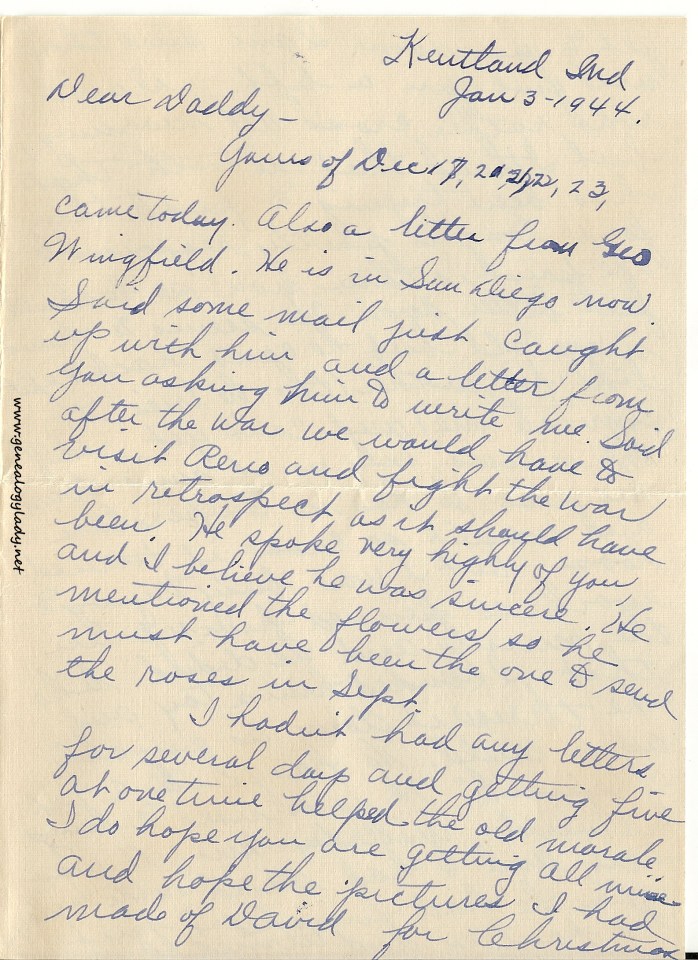 Kentland Ind
Jan 3-1944.
Dear Daddy-
Yours of Dec 17, 20, 21, 22, 23,
came today. Also a letter from Geo
Wingfield. He is in San Diego now.
Said some mail just caught
up with him and a letter from
you asking him to write me. Said
after the war we would have to
visit Reno and fight the war
in retrospect as it should have
been. He spoke very highly of you,
and I believe he was sincere. He
mentioned the flowers so he
must have been the one to send
the roses in Sept.
I hadn't had any letters
for several days and getting five
at one time helped the old morale.
I do hope you are getting all mine
and hope the pictures I had
made of David for Christmas
www.genealogylady.net